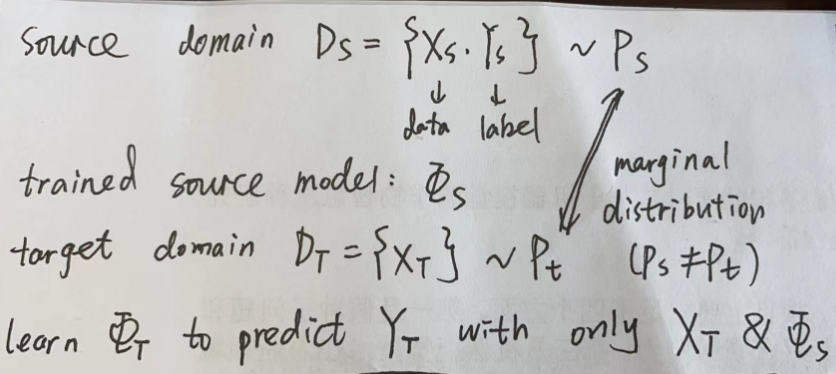 source domain D_S = {X_S . Y_S} ~ P_S
↓ ↓
data label
marginal
trained source model: Φ_S
distribution
target domain D_T = {X_T} ~ P_t (P_S ≠ P_t)
learn Φ_T to predict Y_T with only X_T & Φ_S